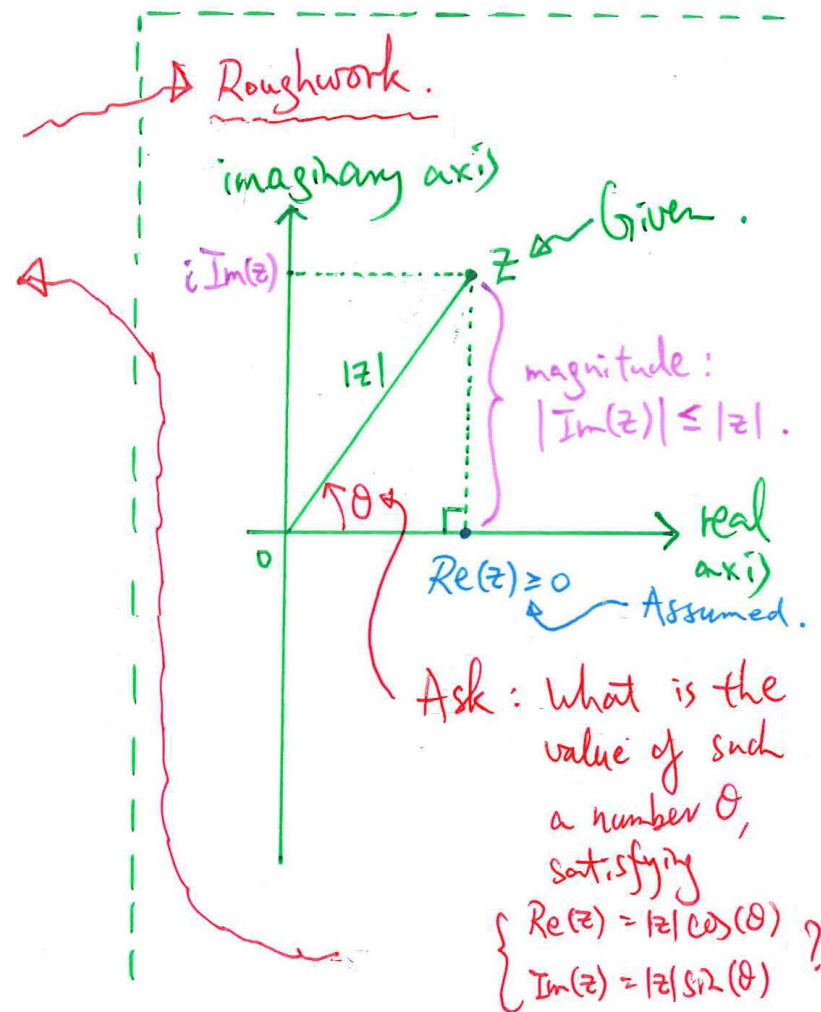 Roughwork.
imaginary axis
Given.
z
i Im(z)
|z|
magnitude:
|Im(z)| ≤ |z|.
θ
0
real
axis
Re(z) ≥ 0
Assumed.
Ask: What is the
value of such
a number θ,
satisfying
{ Re(z) = |z| cos(θ)
Im(z) = |z| sin(θ) ?